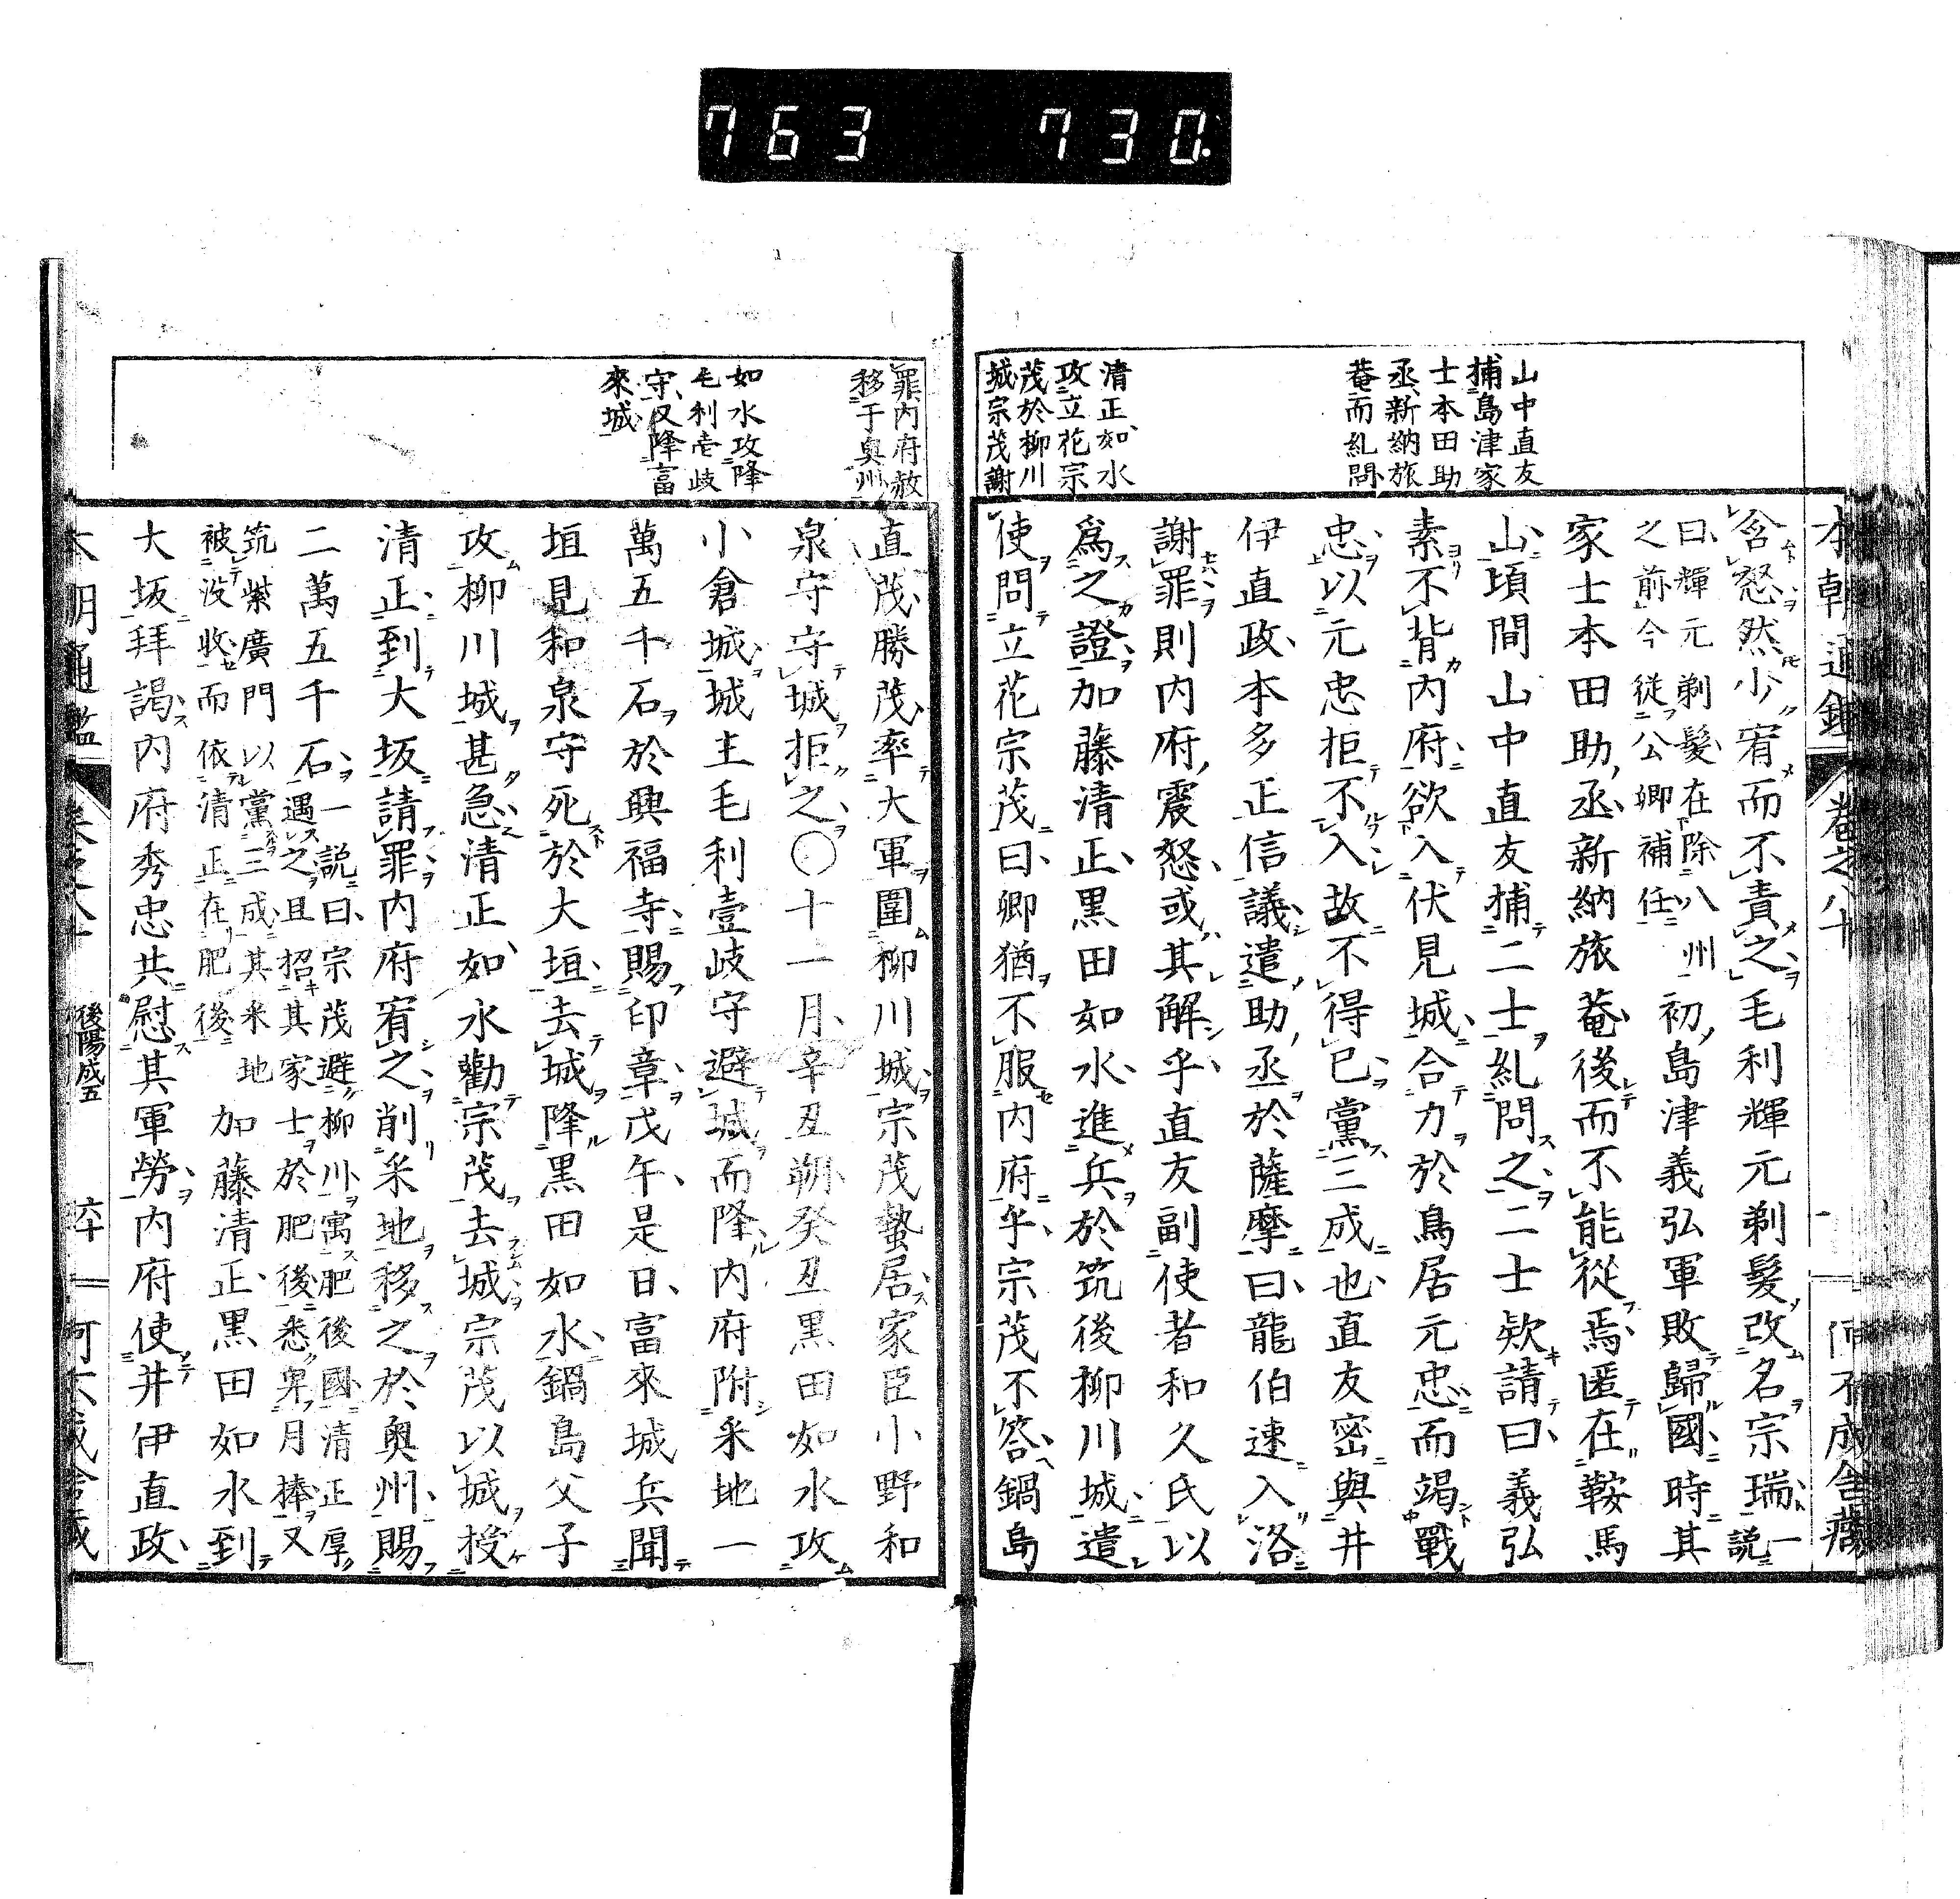 763 730.
山中直友
捕島津家
士本田助
丞新納旅
菴而糺問
清正如水
攻立花宗
茂於柳川
城宗茂謝
本朝通鑑 卷之八十
含怒然少宥而不責之毛利輝元剃髮改名宗瑞一説
曰輝元剃髮在除八州
之前今從公卿補任
初島津義弘軍敗歸國時其
家士本田助丞新納旅菴後而不能從焉匿在鞍馬
山頃間山中直友捕二士糺問之二士欵請曰義弘
素不背内府欲入伏見城合力於鳥居元忠而竭戰
忠以元忠拒不入故不得已黨三成也直友密與井
伊直政本多正信議遣助丞於薩摩曰龍伯速入洛
謝罪則内府震怒或其解乎直友副使者和久氏以
爲之證加藤清正黒田如水進兵於筑後柳川城遣
使問立花宗茂曰卿猶不服内府乎宗茂不答鍋島
罪内府赦
移于奥州
如水攻降
毛利壱岐
守又降富
來城
直茂勝茂率大軍圍柳川城宗茂蟄居家臣小野和
泉守守城拒之〇十一月辛丑朔癸丑黒田如水攻
小倉城城主毛利壹岐守避城而降内府附釆地一
萬五千石於興福寺賜印章戊午是日富來城兵聞
垣見和泉守死於大垣去城降黒田如水鍋島父子
攻柳川城甚急清正如水勸宗茂去城宗茂以城授
清正到大坂請罪内府宥之削釆地移之於奥州賜
二萬五千石一説曰宗茂避柳川寓肥後國清正厚
遇之且招其家士於肥後悉卑月捧又
筑紫廣門以黨三成其釆地
被没收而依清正在肥後
加藤清正黒田如水到
大坂拜謁内府秀忠共慰其軍勞内府使井伊直政
本朝通鑑 後陽成五